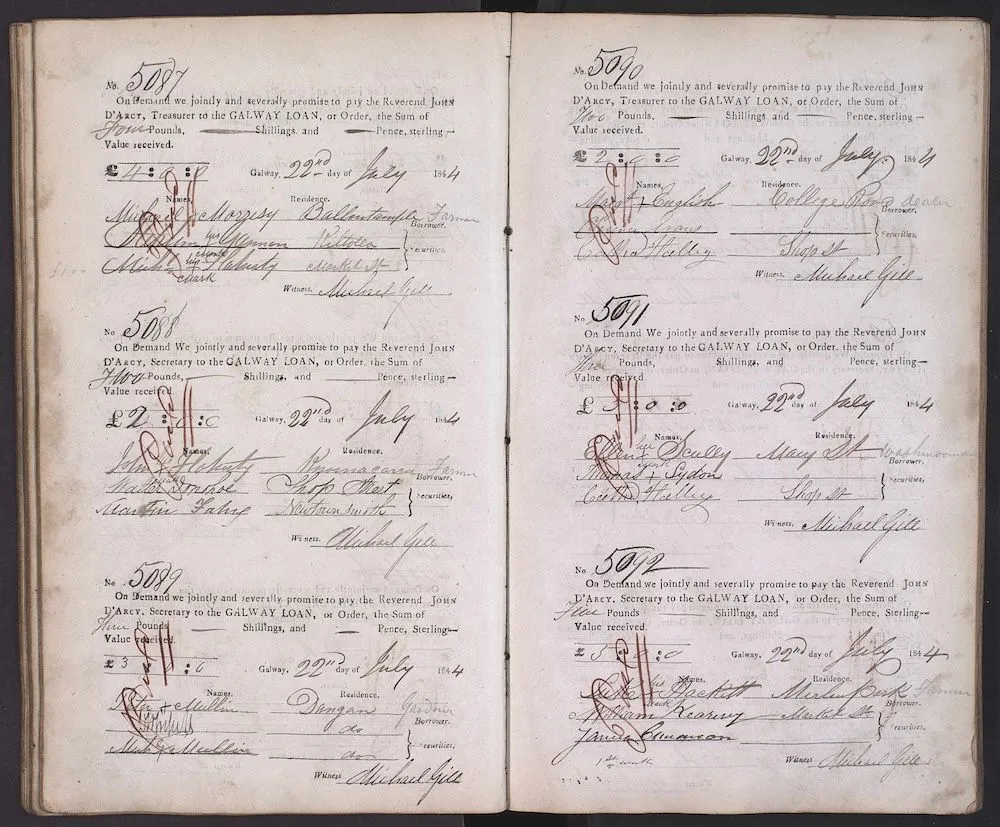 No. 5087
On Demand we jointly and severally promise to pay the Reverend JOHN
D'ARCY, Treasurer to the GALWAY LOAN, or Order, the Sum of
Four Pounds, — Shillings. and — Pence, sterling—
Value received.
£ 4 : 0 : 0 Galway, 22nd day of July 1844
Names, Residence.
Michael Morrisy Farmer
Borrower.
his
mark Securities,
his Flaherty Market St
mark
Witness. Michael Gill
No 5088
On Demand We jointly and severally promise to pay the Reverend JOHN
D'ARCY, Secretary to the GALWAY LOAN, or Order, the Sum of
Two Pounds, — Shillings, and — Pence, sterling—
Value received.
£ 2 : 0 : 0 Galway, 22nd day of July 1844
Names, Residence,
John Flaherty Farmer
Borrower.
Walter Donohoe Shop Street
Securities,
Martin Fahy Newtown Smith
Witness. Michael Gill
No 5089
On Demand we jointly and severally promise to pay the Reverend JOHN
D'ARCY, Secretary to the GALWAY LOAN, or Order, the Sum of
Three Pounds — Shillings, and — Pence, Sterling—
Value received.
£ 3 : : 0 Galway, 22nd day of July 1844
Names, Residence.
Peter Mullin Dangan Gardner
Borrower.
do
Securities,
Mullin do
Witness Michael Gill
No. 5090
On Demand we jointly and severally promise to pay the Reverend JOHN
D'ARCY, Treasurer to the GALWAY LOAN, or Order, the Sum of
Two Pounds, — Shillings and — Pence, sterling—
Value received.
£ 2 : 0 : 0 Galway, 22nd day of July. 1844
Names, Residence.
English College Road dealer
Borrower.
Securities.
Shop St
Witness. Michael Gill
No. 5091
On Demand We jointly and severally promise to pay the Reverend JOHN
D'ARCY, Secretary to the GALWAY LOAN, or Order, the Sum of
Three Pounds, Shillings, and Pence, sterling—
Value received
£ 3 : 0 : 0 Galway, 22nd day of July 1844
Names, Residence.
her
Ellen Scully Mary St Washwoman
mark Borrower,
Thomas Lydon
Securities,
Shop St
Witness. Michael Gill
No 5092
On Demand we jointly and severally promise to pay the Reverend JOHN
D'ARCY, Secretary to the GALWAY LOAN, or Order, the Sum of
Three Pounds — Shillings, and — Pence, Sterling—
Value received.
£ 3 : 0 : 0 Galway, 22nd day of July 1844
Names. Residence.
his
Hackett Merlin Park Farmer
mark Borrower.
William Kearny Market St
Securities.
James
Witness Michael Gill